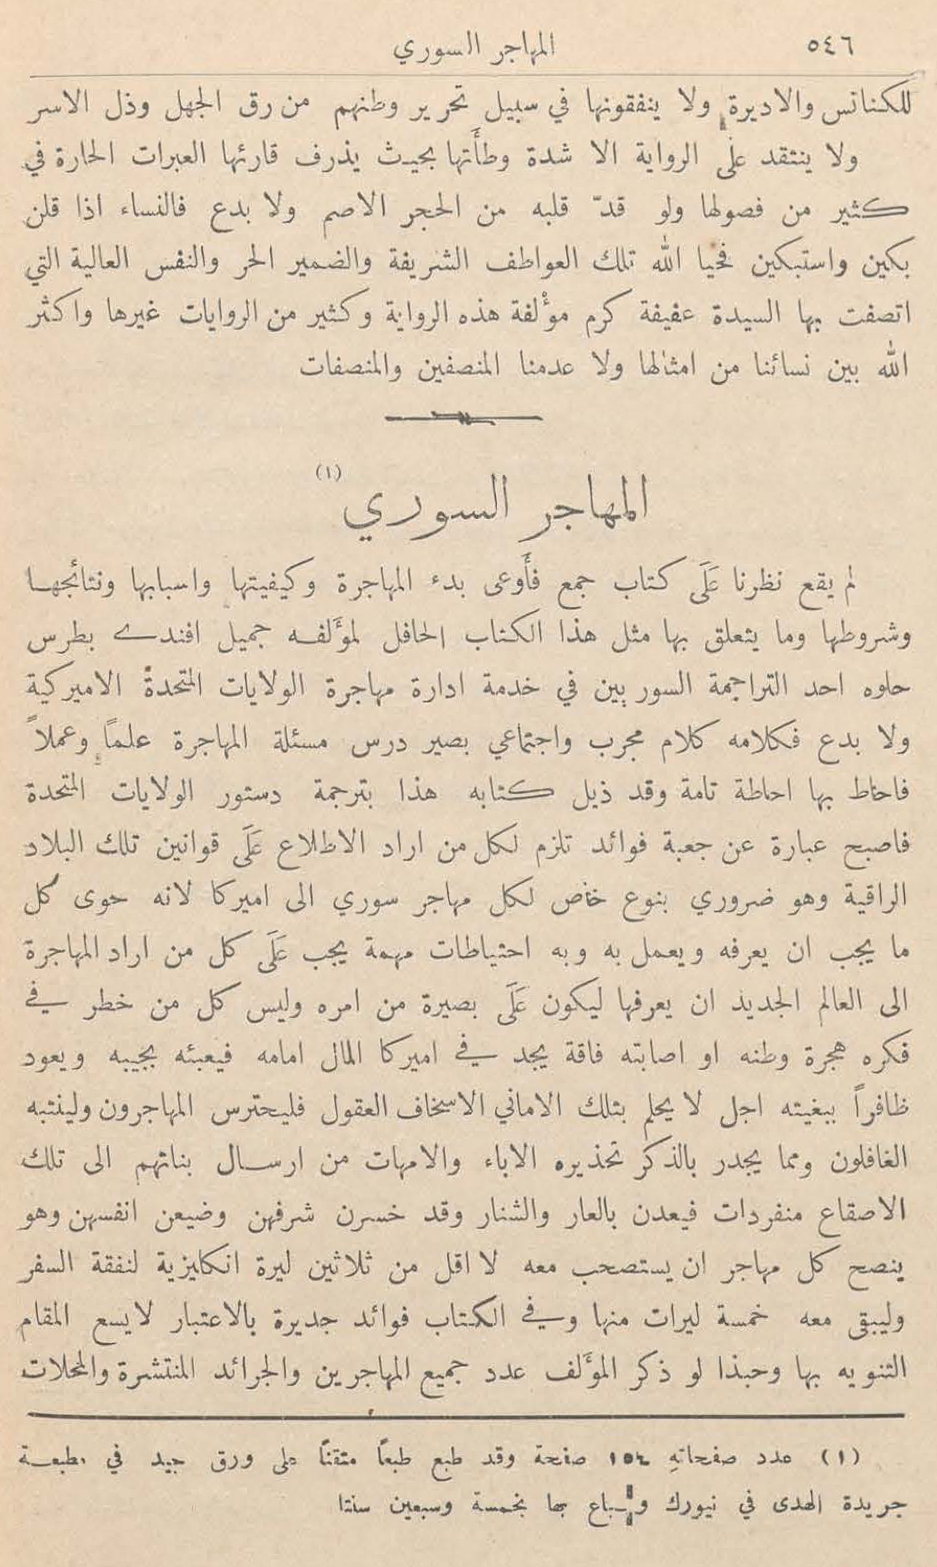 ٥٤٦
المهاجر السوري
للكنائس والاديرة ولا ينفقونها في سبيل تحرير وطنهم من رق الجهل وذل الاسر
ولا ينتقد على الرواية الا شدة وطأتها بحيث يذرف قارئها العبرات الحارة في
كثير من فصولها ولو قدّ قلبه من الحجر الاصم ولا بدع فالنساء اذا قلن
بكين واستبكين فحيا الله تلك العواطف الشريفة والضمير الحر والنفس العالية التي
اتصفت بها السيدة عفيفة كرم مؤلفة هذه الرواية وكثير من الروايات غيرها واكثر
الله بين نسائنا من امثالها ولا عدمنا المنصفين والمنصفات
المهاجر السوري (١)
لم يقع نظرنا عَلَى كتاب جمع فأوعى بدء المهاجرة وكيفيتها واسبابها ونتائجها
وشروطها وما يتعلق بها مثل هذا الكتاب الحافل لمؤلفه جميل افندي بطرس
حلوه احد التراجمة السوريين في خدمة ادارة مهاجرة الولايات المتحدة الاميركية
ولا بدع فكلامه كلام مجرب واجتماعي بصير درس مسئلة المهاجرة علماً وعملاً
فاحاط بها احاطة تامة وقد ذيل كتابه هذا بترجمة دستور الولايات المتحدة
فاصبح عبارة عن جعبة فوائد تلزم لكل من اراد الاطلاع عَلَى قوانين تلك البلاد
الراقية وهو ضروري بنوع خاص لكل مهاجر سوري الى اميركا لانه حوى كل
ما يجب ان يعرفه ويعمل به وبه احتياطات مهمة يجب عَلَى كل من اراد المهاجرة
الى العالم الجديد ان يعرفها ليكون عَلَى بصيرة من امره وليس كل من خطر في
فكره هجرة وطنه او اصابته فاقة يجد في اميركا المال امامه فيعبئه بجيبه ويعود
ظافراً ببغيته اجل لا يحلم بتلك الاماني الا سخاف العقول فليحترس المهاجرون ولينتبه
الغافلون ومما يجدر بالذكر تحذيره الاباء والامهات من ارسال بناتهم الى تلك
الاصقاع منفردات فيعدن بالعار والشنار وقد خسرن شرفهن وضيعن انفسهن وهو
ينصح كل مهاجر ان يستصحب معه لا اقل من ثلاثين ليرة انكليزية لنفقة السفر
وليبقى معه خمسة ليرات منها وفي الكتاب فوائد جديرة بالاعتبار لا يسع المقام
التنويه بها وحبذا لو ذكر المؤلف عدد جميع المهاجرين والجرائد المنتشرة والمحلات
(١) عدد صفحاته ١٥٤ صفحة وقد طبع طبعاً متقناً على ورق جيد في مطبعة
جريدة الهدى في نيورك ويباع بها بخمسة وسبعين سنتا